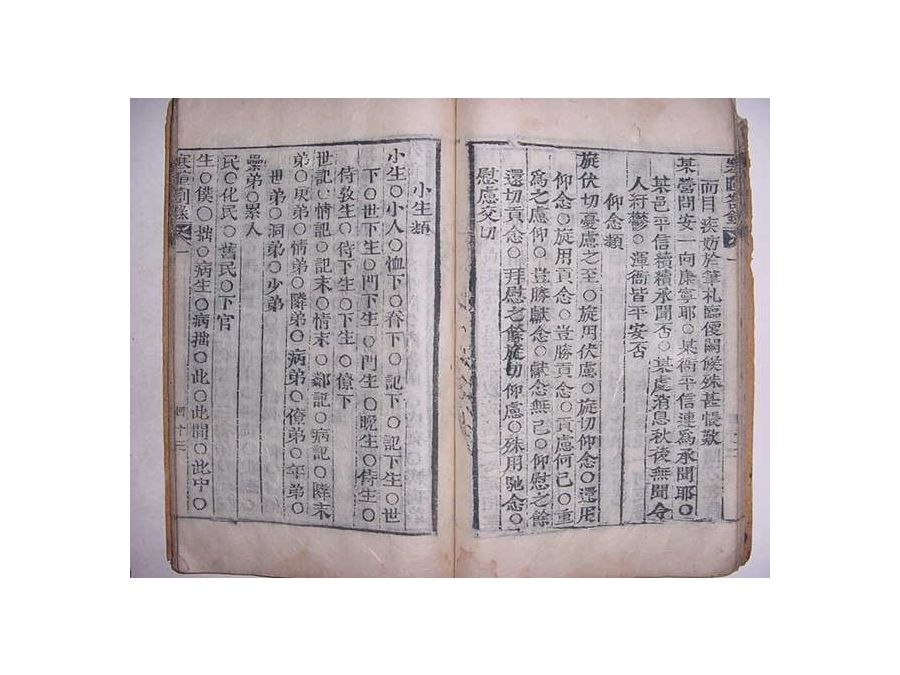 而目疾妨於筆札臨優闕候殊甚悵歎
某營問安一向康寧耶○某衙平信連為承聞耶○
某邑平信續續承聞否○某處消息秋後無聞令
人紆鬱○運衙皆平安否
仰念類
旋伏切憂慮之至○旋用伏慮○旋切仰念○還用
仰念○旋用貢念○豈勝貢念○貢慮何已○重
為之慮仰○豈勝獻念○獻念無已○仰慰之餘
還切貢念○拜慰之餘旋切仰慮○殊用馳念○
慰慮交切
小生類
小生○小人○恤下○眷下○記下○記下生○世
下○世下生○門下生○門生○晚生○侍生○
侍教生○侍下生○下生○僚下
世記○情記○記末○情末○鄰記○病記○隣末
弟○戾弟○情弟○隣弟○病弟○僚弟○年弟○
世弟○洞弟○少弟
纍弟○累人
民○化民○舊民○下官
生○僕○拙○病生○病拙○此○此間○此中○